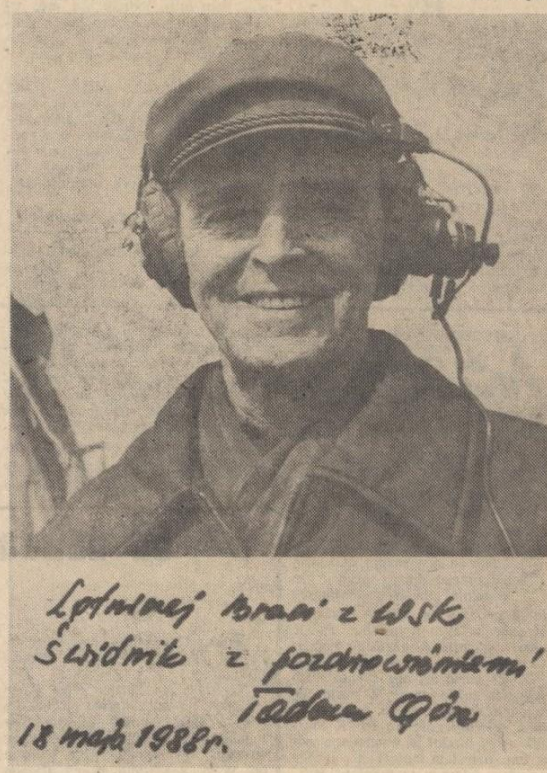 Lotniczej Braci z WSK
Świdnik z pozdrowieniami
Tadeusz Góra
18 maja 1988r.